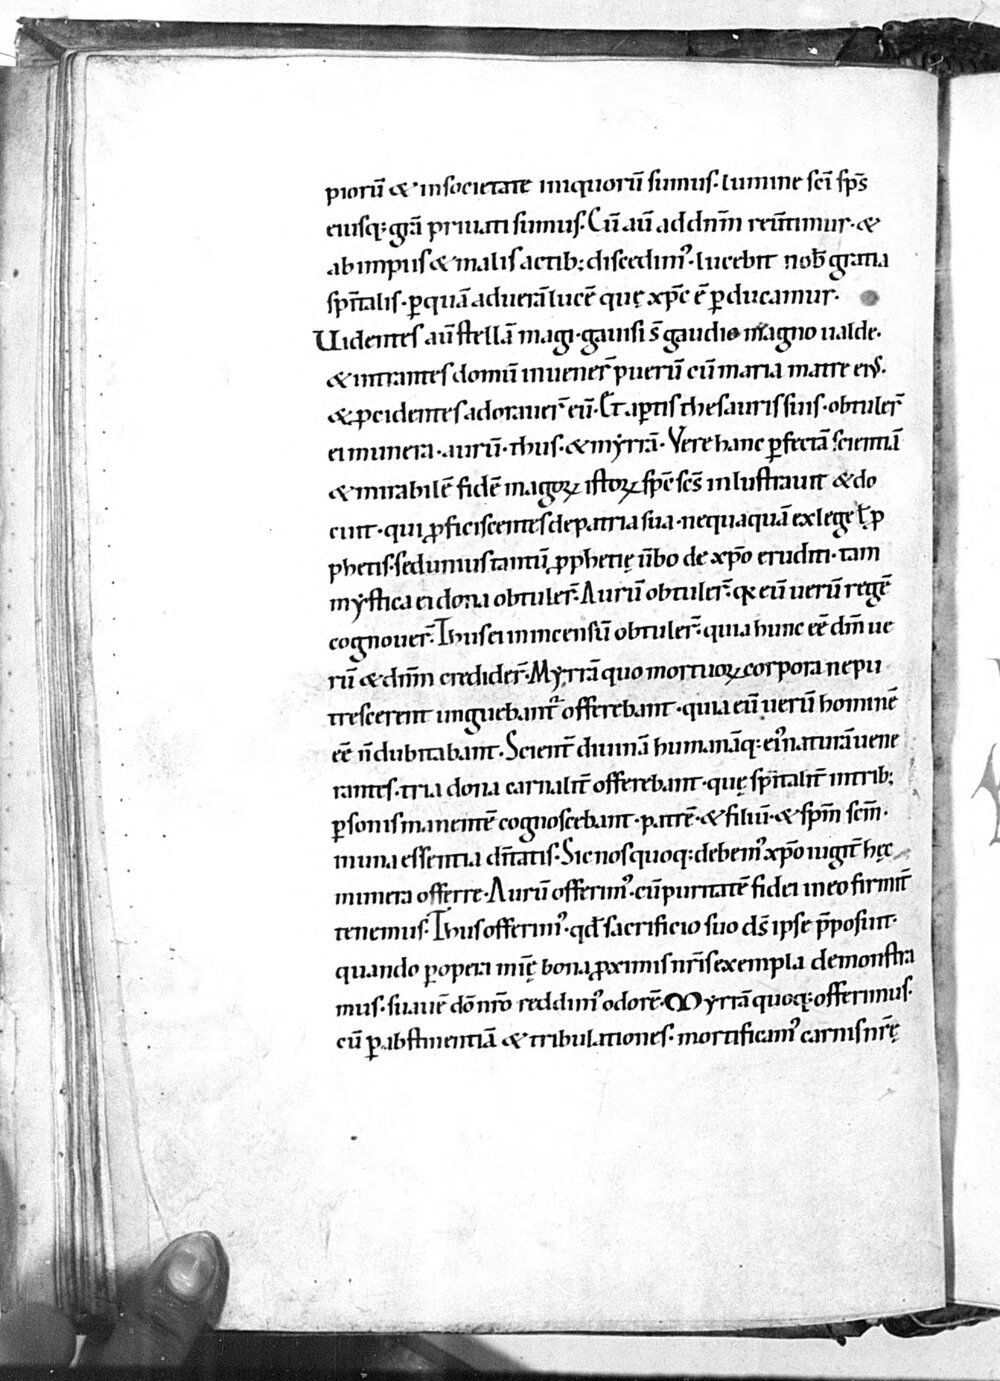 piorū & insocietate iniquorū sumus· lumine sc̄i sp̄s
eiusq; gr̄a priuati sumus. Cū aū ad dn̄m reūtimur· &
ab impiis & malis actib; discedim᷒· lucebit nob̄ gratia
sp̄italis· ꝑquā ad uerā lucē quę xp̄c ē ꝑducamur·
Uidentes aū stellā magi· gauisi s̄ gaudio magno ualde·
& intrantes domū inuener̄ puerū cū maria matre ei᷒·
& ꝓcidentes adorauer̄ eū· Et aꝑtis thesauris suis· obtuler̄
ei munera· aurū· thus· & myrrā· Vere hanc ꝑfectā scientiā
& mirabilē fidē magoꝝ istoꝝ sp̄c sc̄s inlustrauit & do
cuit· qui ꝓficiscentes de patria sua· nequaquā ex lege ł ꝓ
phetis· sed unius tantū ꝓphetię ūbo de xp̄o eruditi· tam
mystica ei dona obtuler̄· Aurū obtuler̄· qa eū uerū regē
cognouer̄· Thus ei in incensū obtuler̄· quia hunc eē dm̄ ue
rū & dn̄m credider̄· Myrrā quo mortuoꝝ corpora ne pu
trescerent unguebant᷑ offerebant· quia eū uerū hominē
eē n̄ dubitabant· Scient̄ diuinā humanāq; ei᷒ naturā uene
rantes· tria dona carnalit̄ offerebant· quę sp̄italit̄ in trib;
ꝑsonis manentē cognoscebant· patrē· & filiū· & sp̄m sc̄m·
in una essentia dn̄tatis· Sic nos quoq; debem᷒ xp̄o iugit̄ hęc
munera offerre· Aurū offerim᷒· cū puritatē fidei in eo firmit̄
tenemus· Thus offerim᷒· qd̄ sacrificio suo ds̄ ipse p̄posuit·
quando ꝑ opera mię̄ bona ꝓximis nr̄is exempla demonstra
mus· suauē dō nr̄o reddim᷒ odorē· Myrrā quoq; offerimus·
cū ꝑ abstinentiā & tribulationes· mortificam᷒ carnis nr̄ę